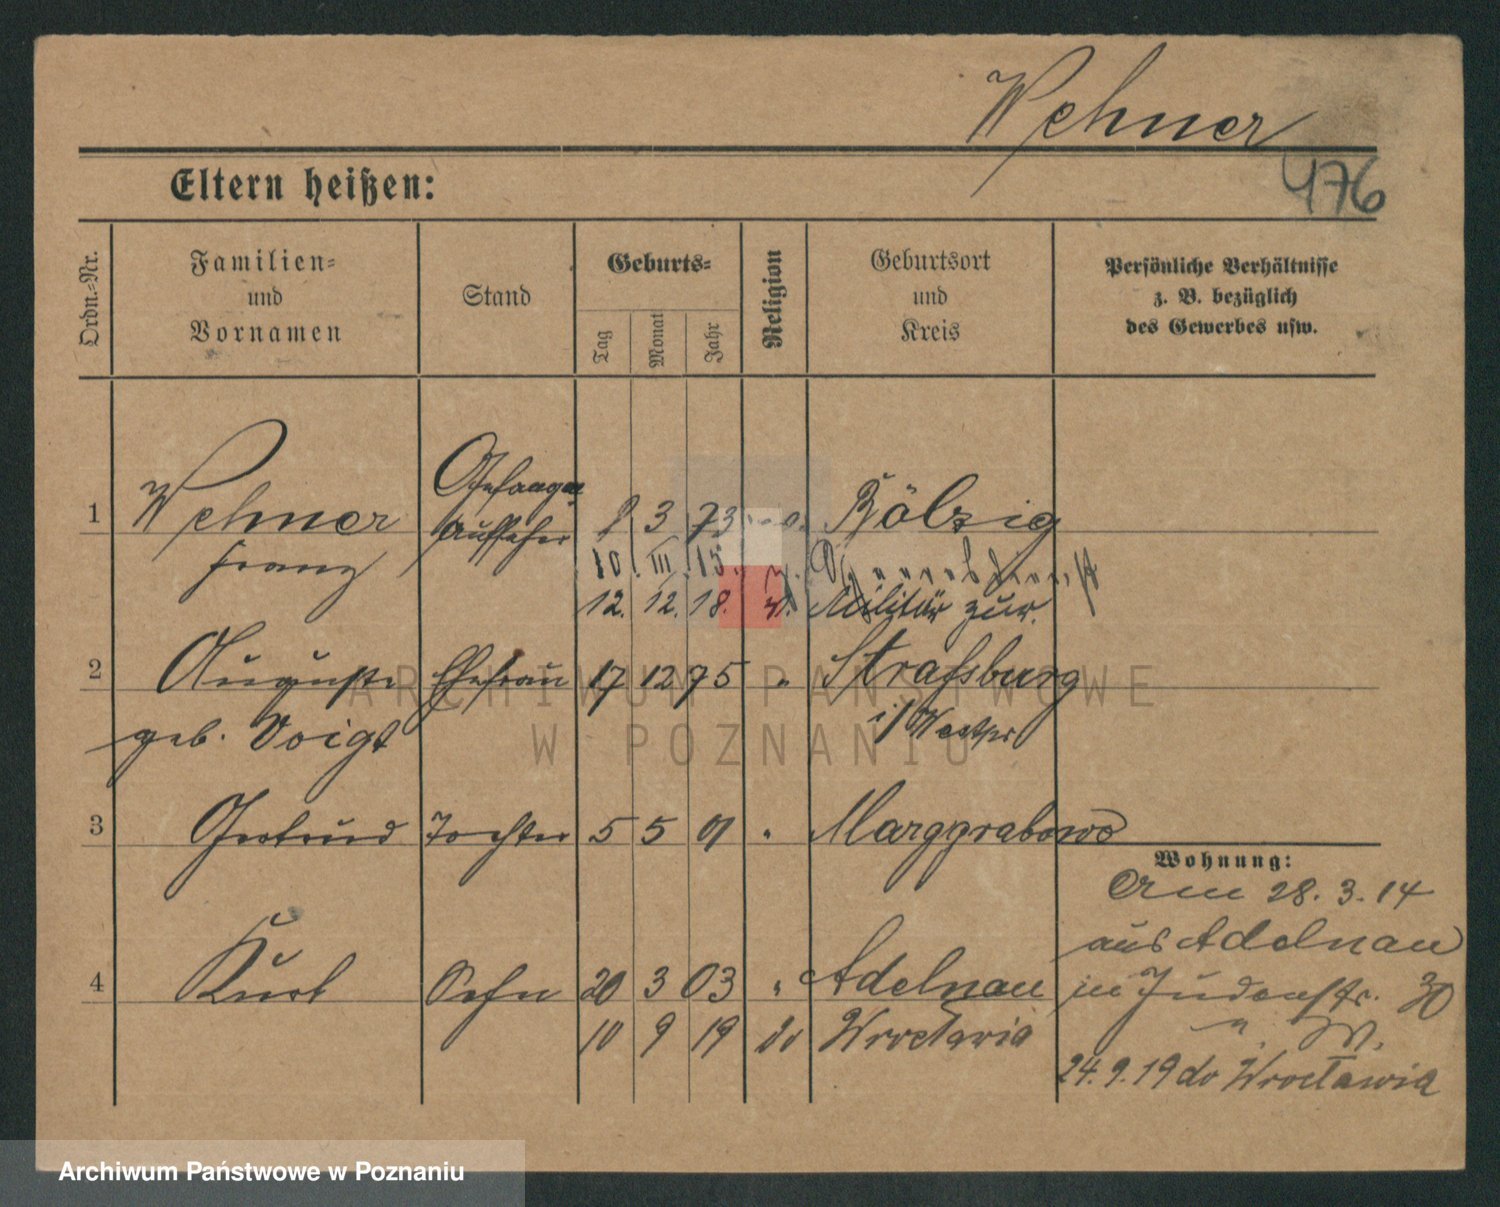 Wehner
476
Eltern heißen:
Ordn.-Nr.
Familien-
und
Vornamen
Stand
Geburts-
Tag
Monat
Jahr
Religion
Geburtsort
und
Kreis
Persönliche Verhältnisse
z. B. bezüglich
des Gewerbes usw.
1 Wehner Gefangen- 8 3 73 Bölzig
Franz Aufseher
10. III. 15. z.
12. 12. 18. v. Militär zur.
2 Auguste Ehefrau 17 12 75 " Strafsburg
geb. Voigt i/Westpr
3 Gertrud Tochter 5 5 01 " Marggrabowo
Wohnung:
Am 28. 3. 14
aus Adelnau
4 Kurt Sohn 20 3 03 " Adelnau
in Judenstr. 30
10 9 19 do Wrocławia
" W.
24. 9. 19 do Wrocławia
ARCHIWUM PAŃSTWOWE
W POZNANIU
Archiwum Państwowe w Poznaniu